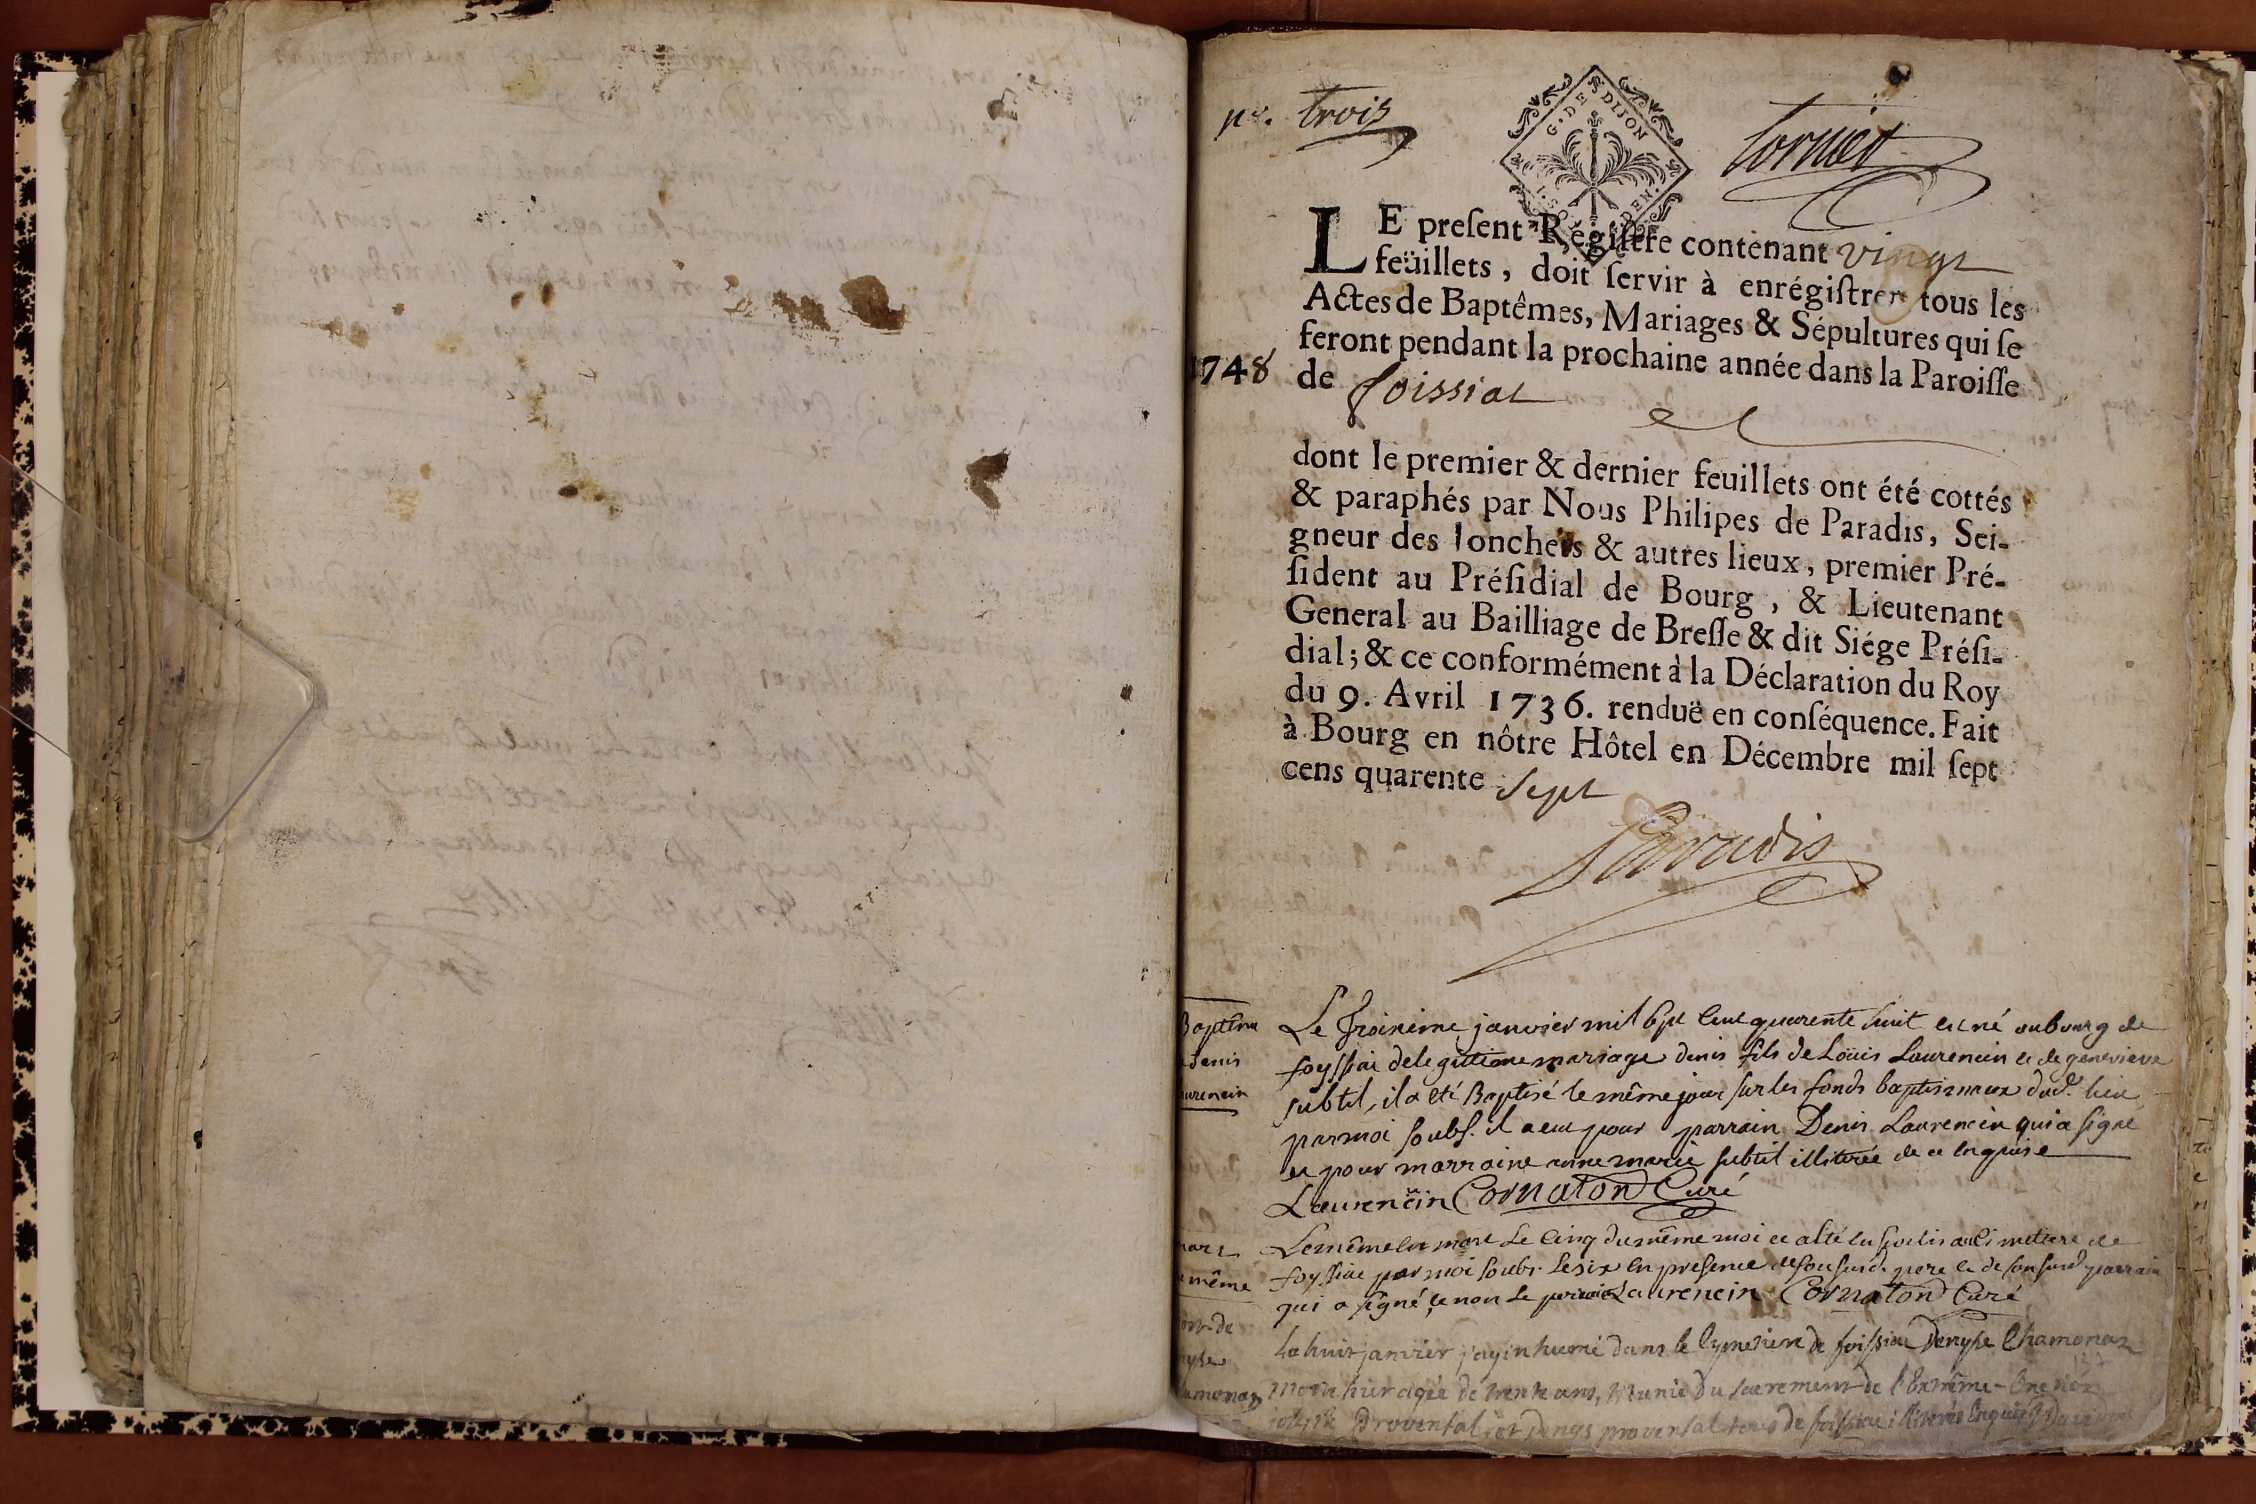 trois
G. DE DIJON
LE preſent Régiſtre contenant vingt
feüillets, doit ſervir à enrégiſtrer tous les
Actes de Baptêmes, Mariages & Sépultures qui ſe
feront pendant la prochaine année dans la Paroiſſe
1748 de foissiat et
dont le premier & dernier feuillets ont été cottés
& paraphés par Nous Philipes de Paradis, Sei-
gneur des Ionchers & autres lieux, premier Pré-
ſident au Préſidial de Bourg, & Lieutenant
General au Bailliage de Breſſe & dit Siége Préſi-
dial; & ce conformément à la Déclaration du Roy
du 9. Avril 1736. renduë en conſéquence. Fait
à Bourg en nôtre Hôtel en Décembre mil ſept
cens quarente sept
Paradis
Baptême
Denis
Laurencin
Le troisieme janvier mil sept cent quarente huit est né au bourg de
foyssia de legittime mariage denis fils de Loüis Laurencin et de genevieve
subtil, il a été Baptisé le même jour sur les fonds baptismaux dud. lieu
par moi soubs. il a eu pour parrain Denis Laurencin qui a signé
et pour marraine anne marie subtil illiterée de ce enquise
Laurencin Cornaton Curé
mort
même
Le même est mort le cinq du même moi et a été en seveli au cimettiere de
foyssiat par moi soubs. le six en presence de son susd. pere et de son susd parrain
qui a signé, et non le pere Laurencin Cornaton Curé
Le huit janvier j'ay inhumé dans le cymetiere de foissiat Denyse Chamonaz
morte hier agée de trente ans, munie du sacrement de l'Extrême-Onction
Provental et Denys provental tous de foissiat illiterés enquis